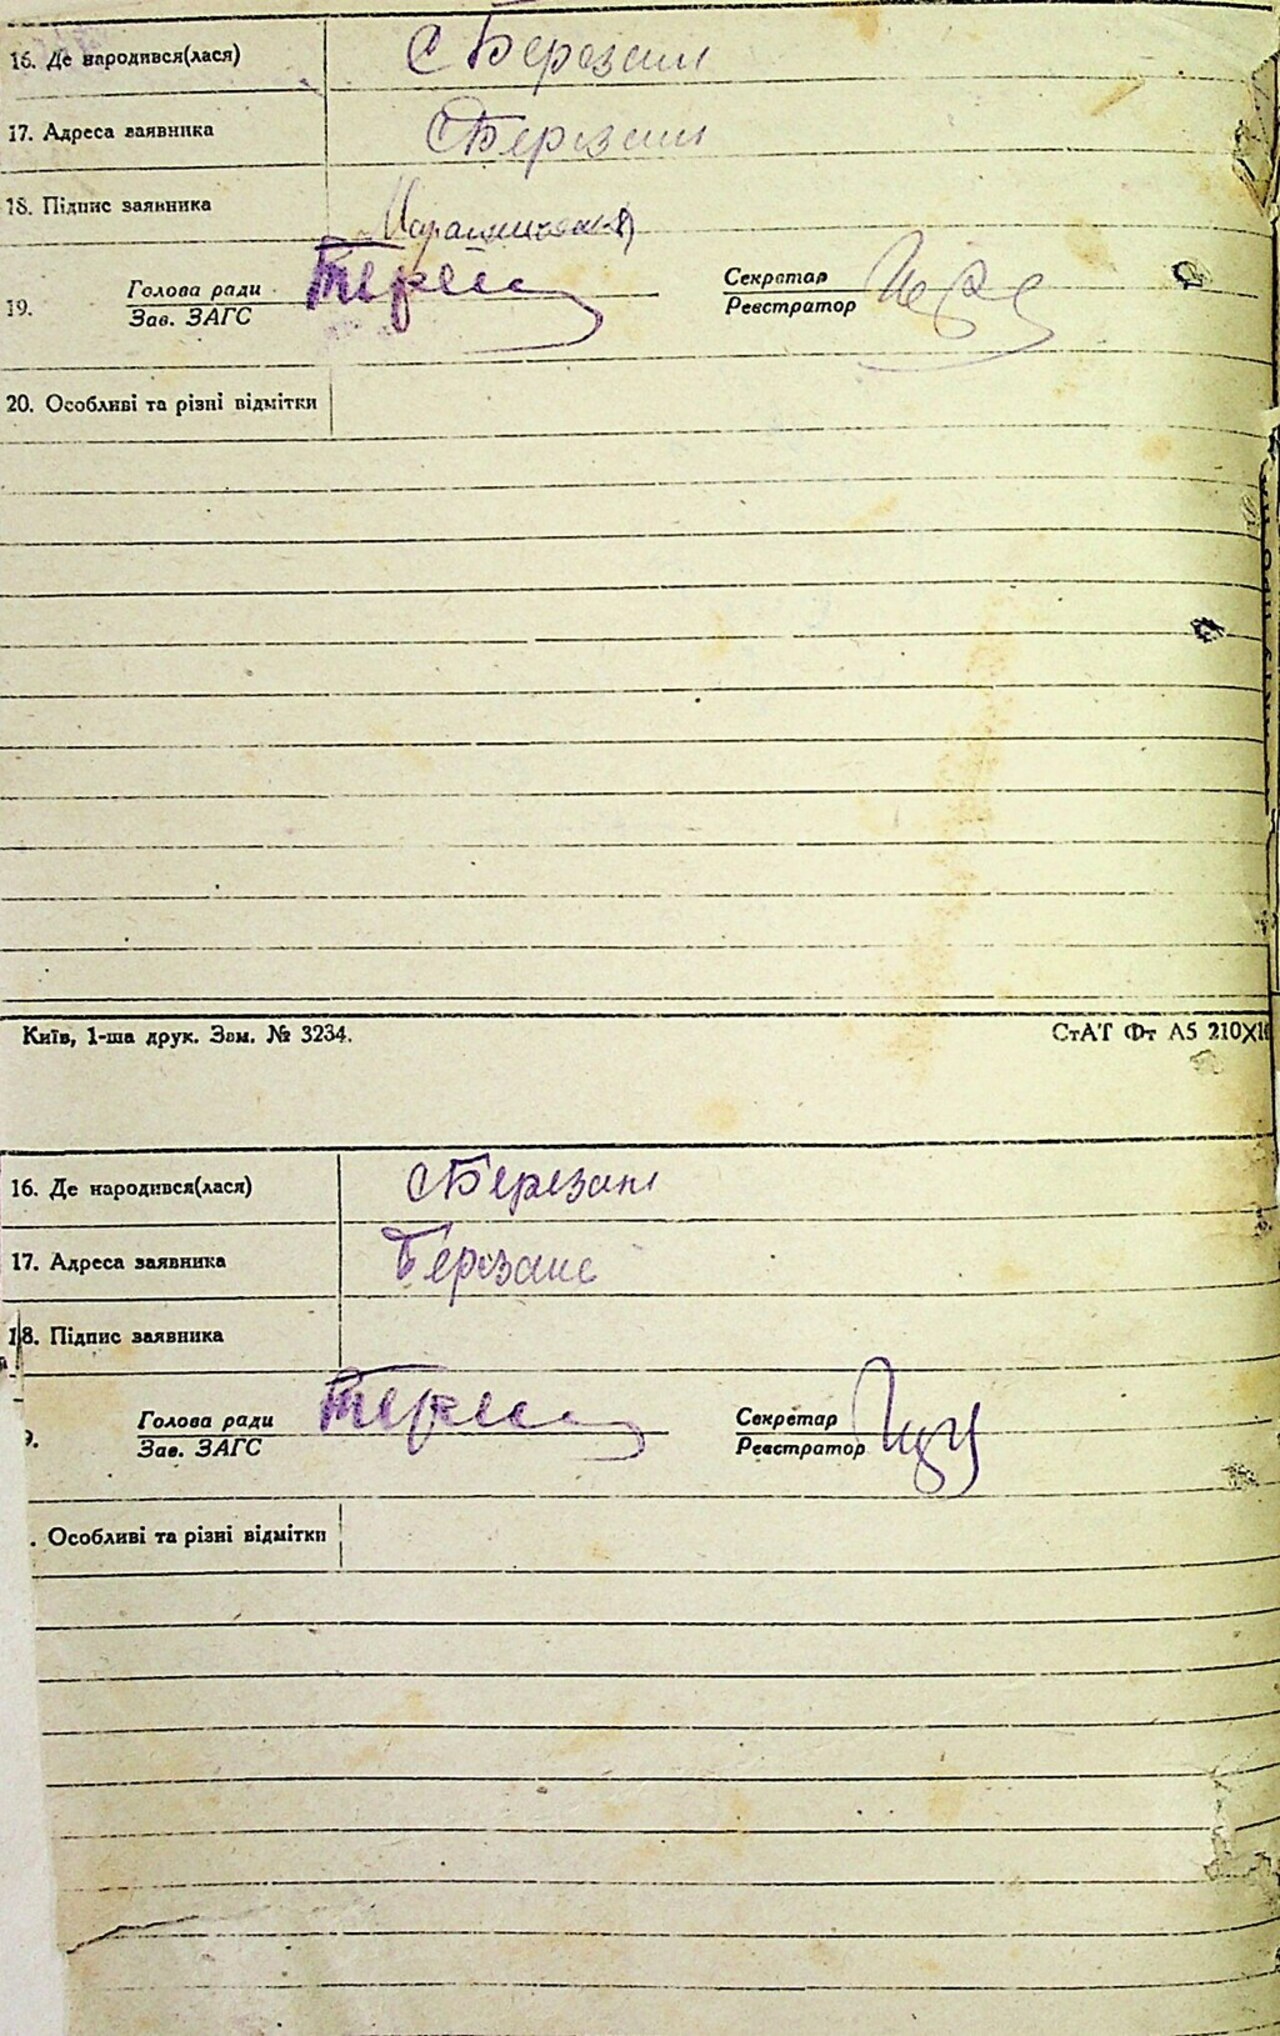 16. Де народився(лася) С Березані
17. Адреса заявника С Березані
18. Підпис заявника
19. Голова ради Секретар
Зав. ЗАГС Реєстратор
20. Особливі та різні відмітки
Київ, 1-ша друк. Зам. № 3234. СтАТ Фт А5 210Х1
16. Де народився(лася) С Березані
17. Адреса заявника Березані
18. Підпис заявника
9. Голова ради Секретар
Зав. ЗАГС Реєстратор
. Особливі та різні відмітки